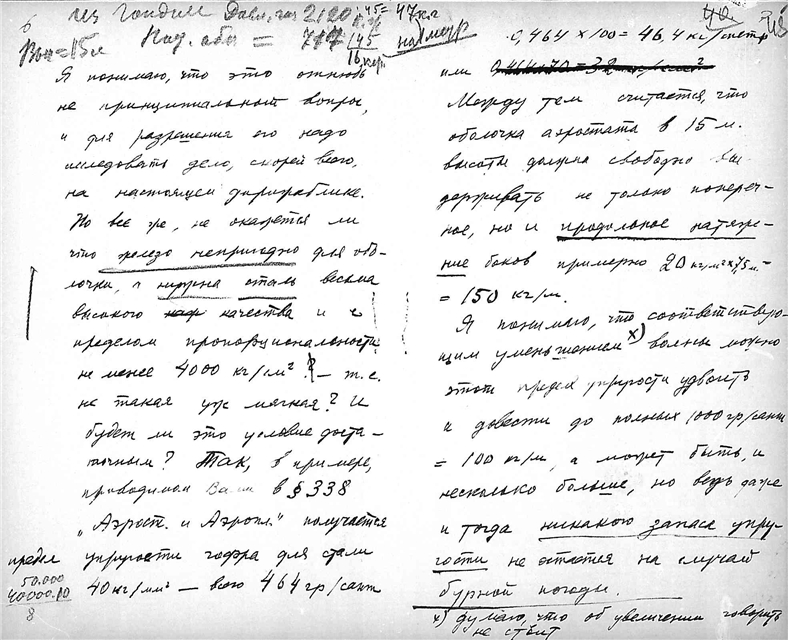 6
:45=
47кг
на 1 метр
Выс=15м
745
Я понимаю, что это отнюдь
не принципиальный вопрос,
и для разрешения его надо
исследовать дело, скорей всего,
на настоящем дирижаблике.
Но все же, не окажется ли
что железо непригодно для обо-
лочки, а нужна сталь весьма
высокого качества и с
пределом пропорциональности
не менее 4000 кг/см² ? — т.е.
не такая уж мягкая? И
будет ли это условие доста-
точным? Так, в примере,
приводимом Вами в § 338
„Аэрост. и Аэропл." получается
предел упругости гофра для стали
50.000
40000.10
40 кг/мм² — всего 464 гр/сант
8
40.
48
0,464 × 100 = 46,4 кг/метр
или
Между тем считается, что
оболочка аэростата в 15 м.
высоты должна свободно вы-
держивать не только попереч-
ное, но и продольное натяже-
ние боков примерно 20 кг/м² × 7,5 м. =
= 150 кг/м.
Я понимаю, что соответствую-
щим уменьшением х) волны можно
этот предел упругости удвоить
и довести до полных 1000 гр/сант
= 100 кг/м, а может быть, и
несколько больше, но ведь даже
и тогда никакого запаса упру-
гости не остается на случай
бурной погоды.
х) думаю, что об увеличении говорить
не стоит